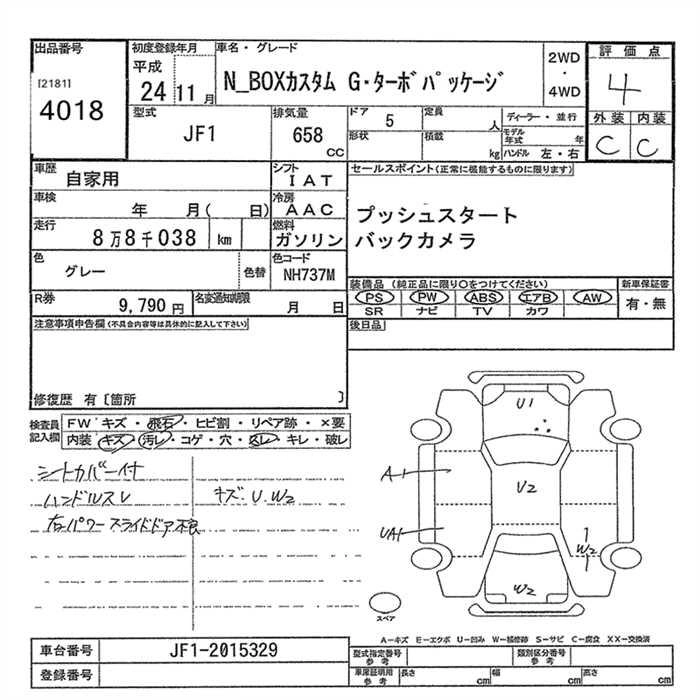 出品番号
[2181]
4018
初度登録年月
平成
24年 11月
車名・グレード
N_BOXカスタム G・ターボパッケージ
2WD
・
4WD
評価点
4
外装 内装
C C
型式
JF1
排気量
658
CC
ドア
5
定員
人
形状
積載
kg
ディーラー・並行
モデル年式 年
ハンドル 左・右
車歴
自家用
シフト
IAT
車検
年 月( 日)
冷房
AAC
走行
8万8千038 km
燃料
ガソリン
色
グレー
色替
色コード
NH737M
R券
9,790円
名変通知期限
月 日
セールスポイント(正常に機能するものに限ります)
プッシュスタート
バックカメラ
装備品 (純正品に限り○をつけてください)
PS PW ABS エアB AW
SR ナビ TV カワ
新車保証書
有・無
後日品
注意事項申告欄(不具合内容等は具体的に記入して下さい)
修復歴 有〔箇所 〕
検査員
記入欄
FW キズ・飛石・ヒビ割・リペア跡・×要
内装 キズ・汚レ・コゲ・穴・スレ・キレ・破レ
シートカバー付
ハンドルスレ
キズ.U.W2
右パワースライドドア不良
U1
A1
U2
UA1
W2
W2
スペア
A-キズ E-エクボ U-凹み W-補修跡 S-サビ C-腐食 XX-交換済
車台番号
JF1-2015329
登録番号
型式指定番号
参考
類別区分番号
参考
車庫証明用
参考
長さ cm
幅 cm
高さ cm